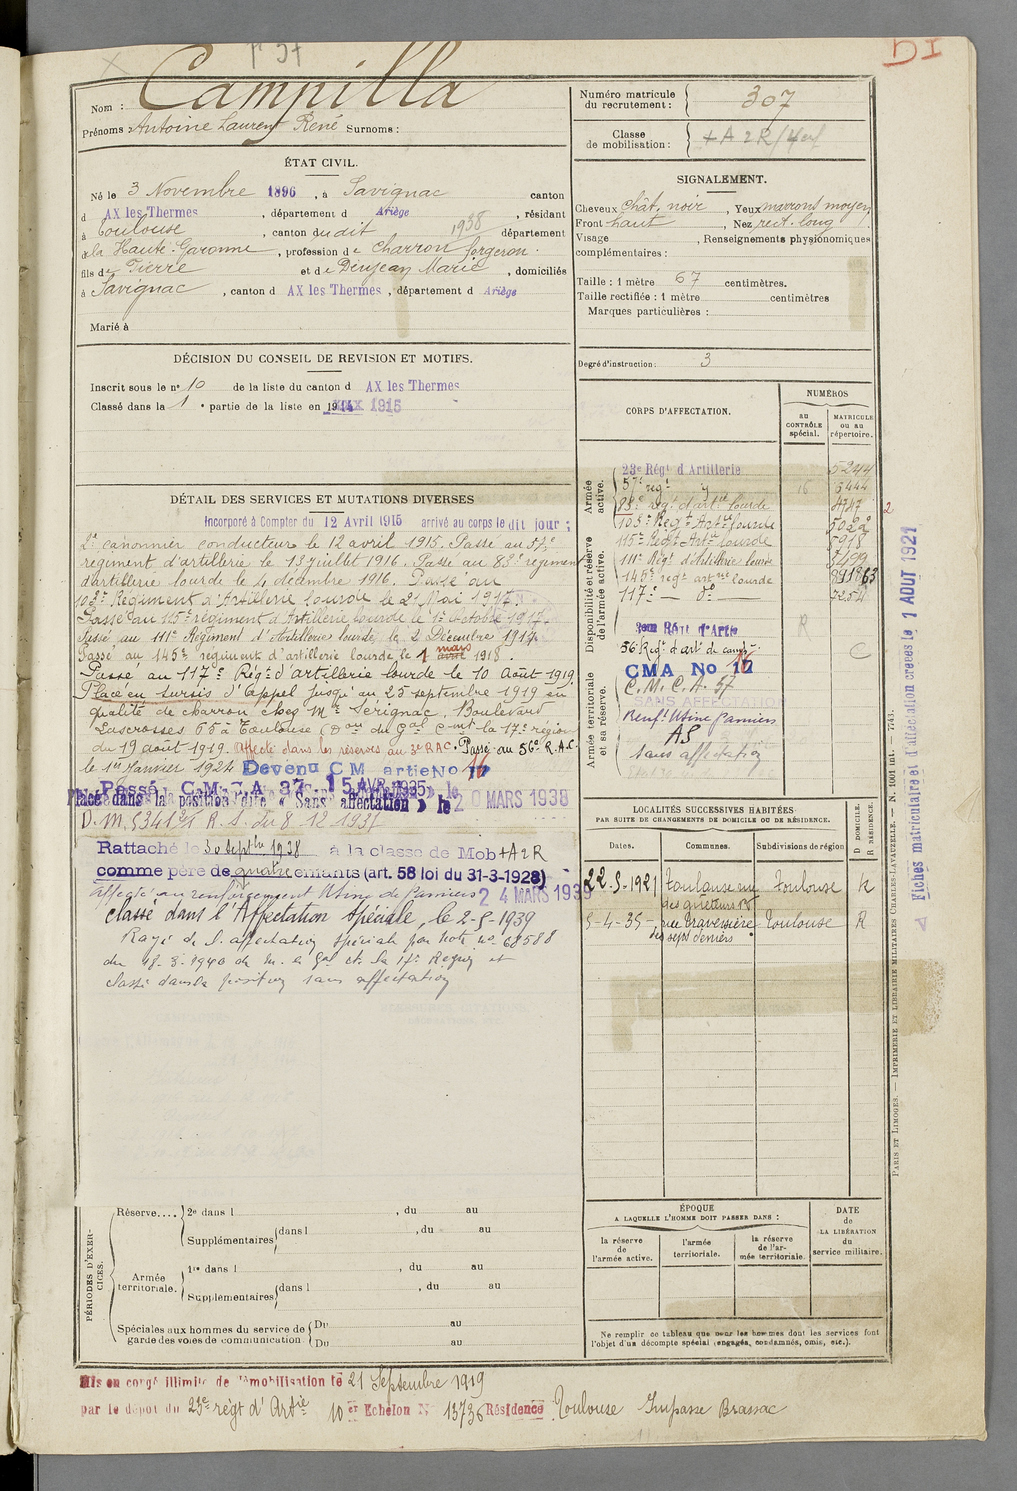 DI
Nom : Campilla
Prénoms : Antoine Laurent René Surnoms :
Numéro matricule du recrutement : 307
Classe de mobilisation : + A 2 R/
ÉTAT CIVIL.
Né le 3 Novembre 1896, à Savignac canton
d AX les Thermes, département d Ariège, résidant
à Toulouse, canton dudit 1938 département
de la Haute-Garonne, profession de charron forgeron.
fils de Pierre et de Dinjean Marie, domiciliés
à Savignac, canton d AX les Thermes, département d Ariège
Marié à
SIGNALEMENT.
Cheveux chât. noir, Yeux marrons moyen
Front haut, Nez rect. long
Visage , Renseignements physionomiques
complémentaires :
Taille : 1 mètre 67 centimètres.
Taille rectifiée : 1 mètre centimètres
Marques particulières :
Degré d'instruction : 3
DÉCISION DU CONSEIL DE REVISION ET MOTIFS.
Inscrit sous le n° 10 de la liste du canton d AX les Thermes
Classé dans la 1e partie de la liste en 1915
DÉTAIL DES SERVICES ET MUTATIONS DIVERSES
Incorporé à Compter du 12 Avril 1915 arrivé au corps le dit jour ;
2e canonnier conducteur le 12 avril 1915. Passé au 57e
régiment d'artillerie le 13 juillet 1916. Passé au 83e régiment
d'artillerie lourde le 4 décembre 1916. Passé au
103e Régiment d'Artillerie lourde le 21 Mai 1917.
Passé au 115e régiment d'Artillerie lourde le 1er Octobre 1917.
Passé au 111e Régiment d'Artillerie lourde, le 2 Décembre 1917
Passé au 145e régiment d'artillerie lourde le 1 mars 1918.
Passé au 117e Régt d'artillerie lourde le 10 Août 1919
Placé en sursis d'appel jusqu'au 25 septembre 1919 en
qualité de charron chez Mr Serignac, Boulevard
Lascrosses 65 à Toulouse (Don du Gal Cmt la 17e région
du 19 août 1919. Affecté dans les réserves au 3e RAC. Passé au 56e R.A.C.
le 1er Janvier 1924 Devenu C M artie No 17
Passé C.M.C.A 37. 15 AVR. 1935
Placé dans la position dite « Sans affectation » le 20 MARS 1938
D.M. 5341 R.S. du 8 12 1937
Rattaché le 30 septbre 1938 à la classe de Mob + A 2 R
comme père de quatre enfants (art. 58 loi du 31-3-1928)
affecté au renforcement Usine de Pamiers 24 MARS 1939
Classé dans l'Affectation Spéciale, le 2-5-1939
Rayé de l'affectation spéciale par note no 68588
du 18.3.1940 de M. le Gal Ct. la 17e Région et
classé dans la position sans affectation
CORPS D'AFFECTATION.
NUMÉROS
au CONTRÔLE spécial.
MATRICULE ou au répertoire.
Armée active.
23e Régt d'Artillerie 5244
57e regt 16 3444
83e regt d'artie lourde 4747
Disponibilité et réserve de l'armée active.
103e Regt Artie lourde 5022
115e Regt Artie lourde 5918
111e Régt d'Artillerie lourde
145e regt artrie lourde
117e — do — 7254
R
C
56e Regt d'art de camp.
CMA No 17
Armée territoriale et sa réserve.
C.M.C.A. 37
SANS AFFECTATION
Renft Usine Pamiers
AS
Sans affectation
Fiches matriculaire et d'affectation créées le 1 AOUT 1921
LOCALITÉS SUCCESSIVES HABITÉES
PAR SUITE DE CHANGEMENTS DE DOMICILE OU DE RÉSIDENCE.
Dates. Communes. Subdivisions de région
D DOMICILE. R RÉSIDENCE.
22-5-1921 Toulouse rue Toulouse R
5-4-35 rue Traversière Toulouse R
des sept deniers
PARIS ET LIMOGES. — IMPRIMERIE ET LIBRAIRIE MILITAIRES CHARLES-LAVAUZELLE.
PÉRIODES D'EXERCICES.
Réserve.... 2e dans l , du au
Supplémentaires dans l , du au
Armée territoriale. 1re dans l , du au
Supplémentaires dans l , du au
Spéciales aux hommes du service de garde des voies de communication.
Du au
Du au
ÉPOQUE
A LAQUELLE L'HOMME DOIT PASSER DANS :
la réserve de l'armée active.
l'armée territoriale.
la réserve de l'armée territoriale.
DATE de LA LIBÉRATION du service militaire.
Ne remplir ce tableau que pour les hommes dont les services font
l'objet d'un décompte spécial (engagés, condamnés, omis, etc.).
Mis en congé illimité de démobilisation le 21 Septembre 1919
par le dépôt du 23e régt d'Artie 10er Echelon No 13736 Résidence Toulouse Impasse Brassac